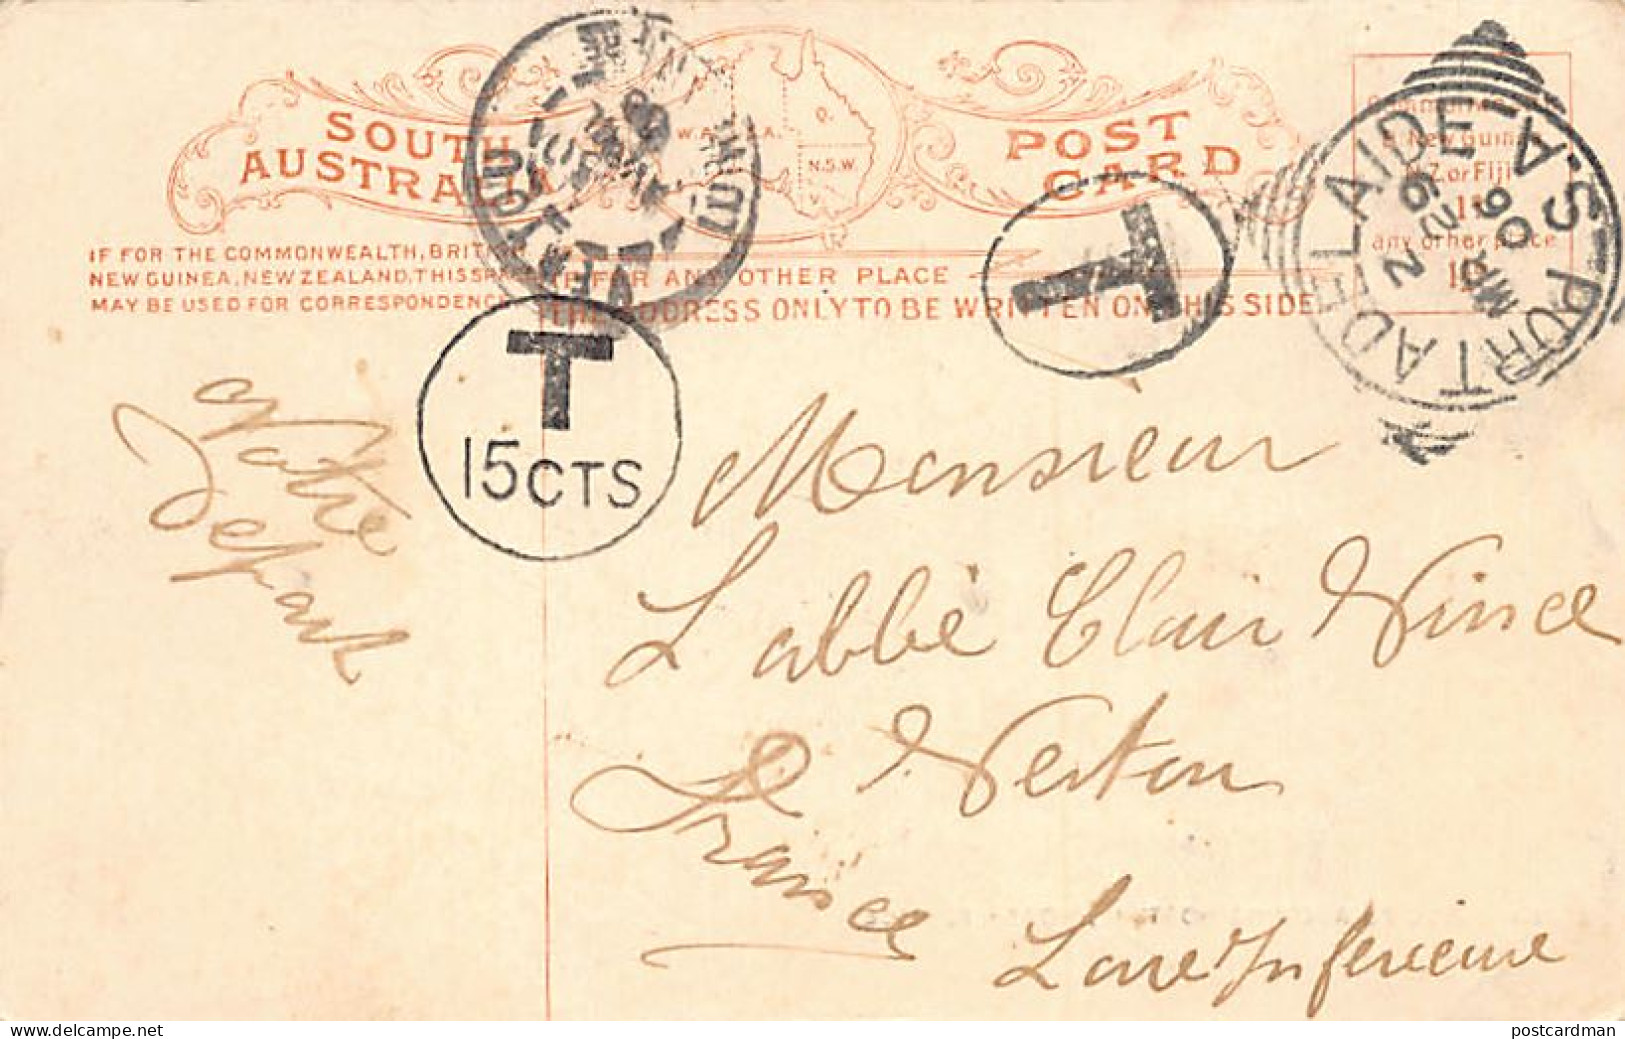 SOUTH AUSTRALIA
POST CARD
W.A.
S.A.
Q.
N.S.W.
V.
IF FOR THE COMMONWEALTH, BRITISH
NEW GUINEA, NEW ZEALAND, THIS SPACE
MAY BE USED FOR CORRESPONDENCE
IF FOR ANY OTHER PLACE
THE ADDRESS ONLY TO BE WRITTEN ON THIS SIDE.
New Guinea
N.Z. or Fiji
any other place
PORT ADELAIDE S.A.
MR 26
06
T
T
15 CTS
Notre
Depart
Monsieur
L'abbé Clair Vince
Verton
France
Loire Inferieure
postcardman